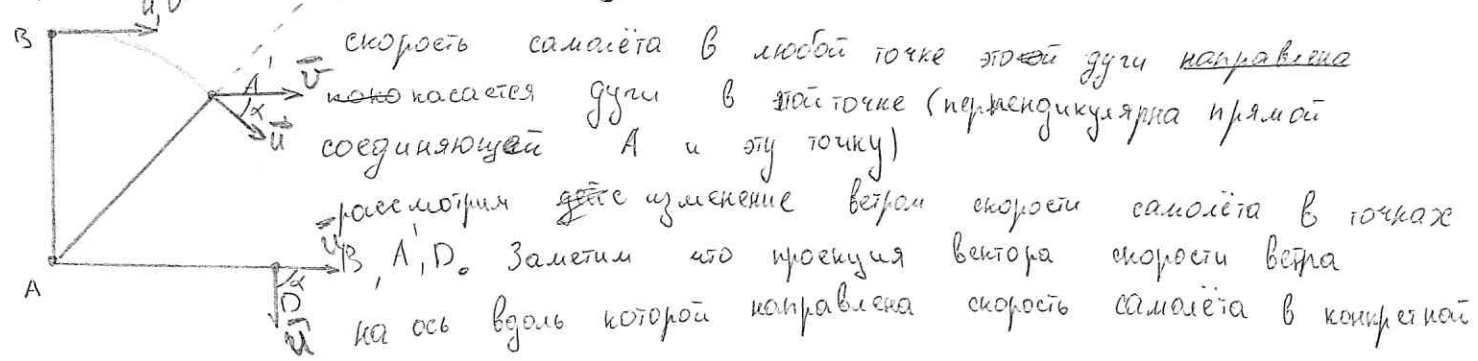 B
скорость самолёта в любой точке этой дуги направлена
касается дуги в этой точке (перпендикулярна прямой
соединяющей A и эту точку)
рассмотрим изменение ветром скорости самолёта в точках
B, A', D. Заметим что проекция вектора скорости ветра
на ось вдоль которой направлена скорость самолёта в конкретной
A'
v
α
u
A
α
D
u